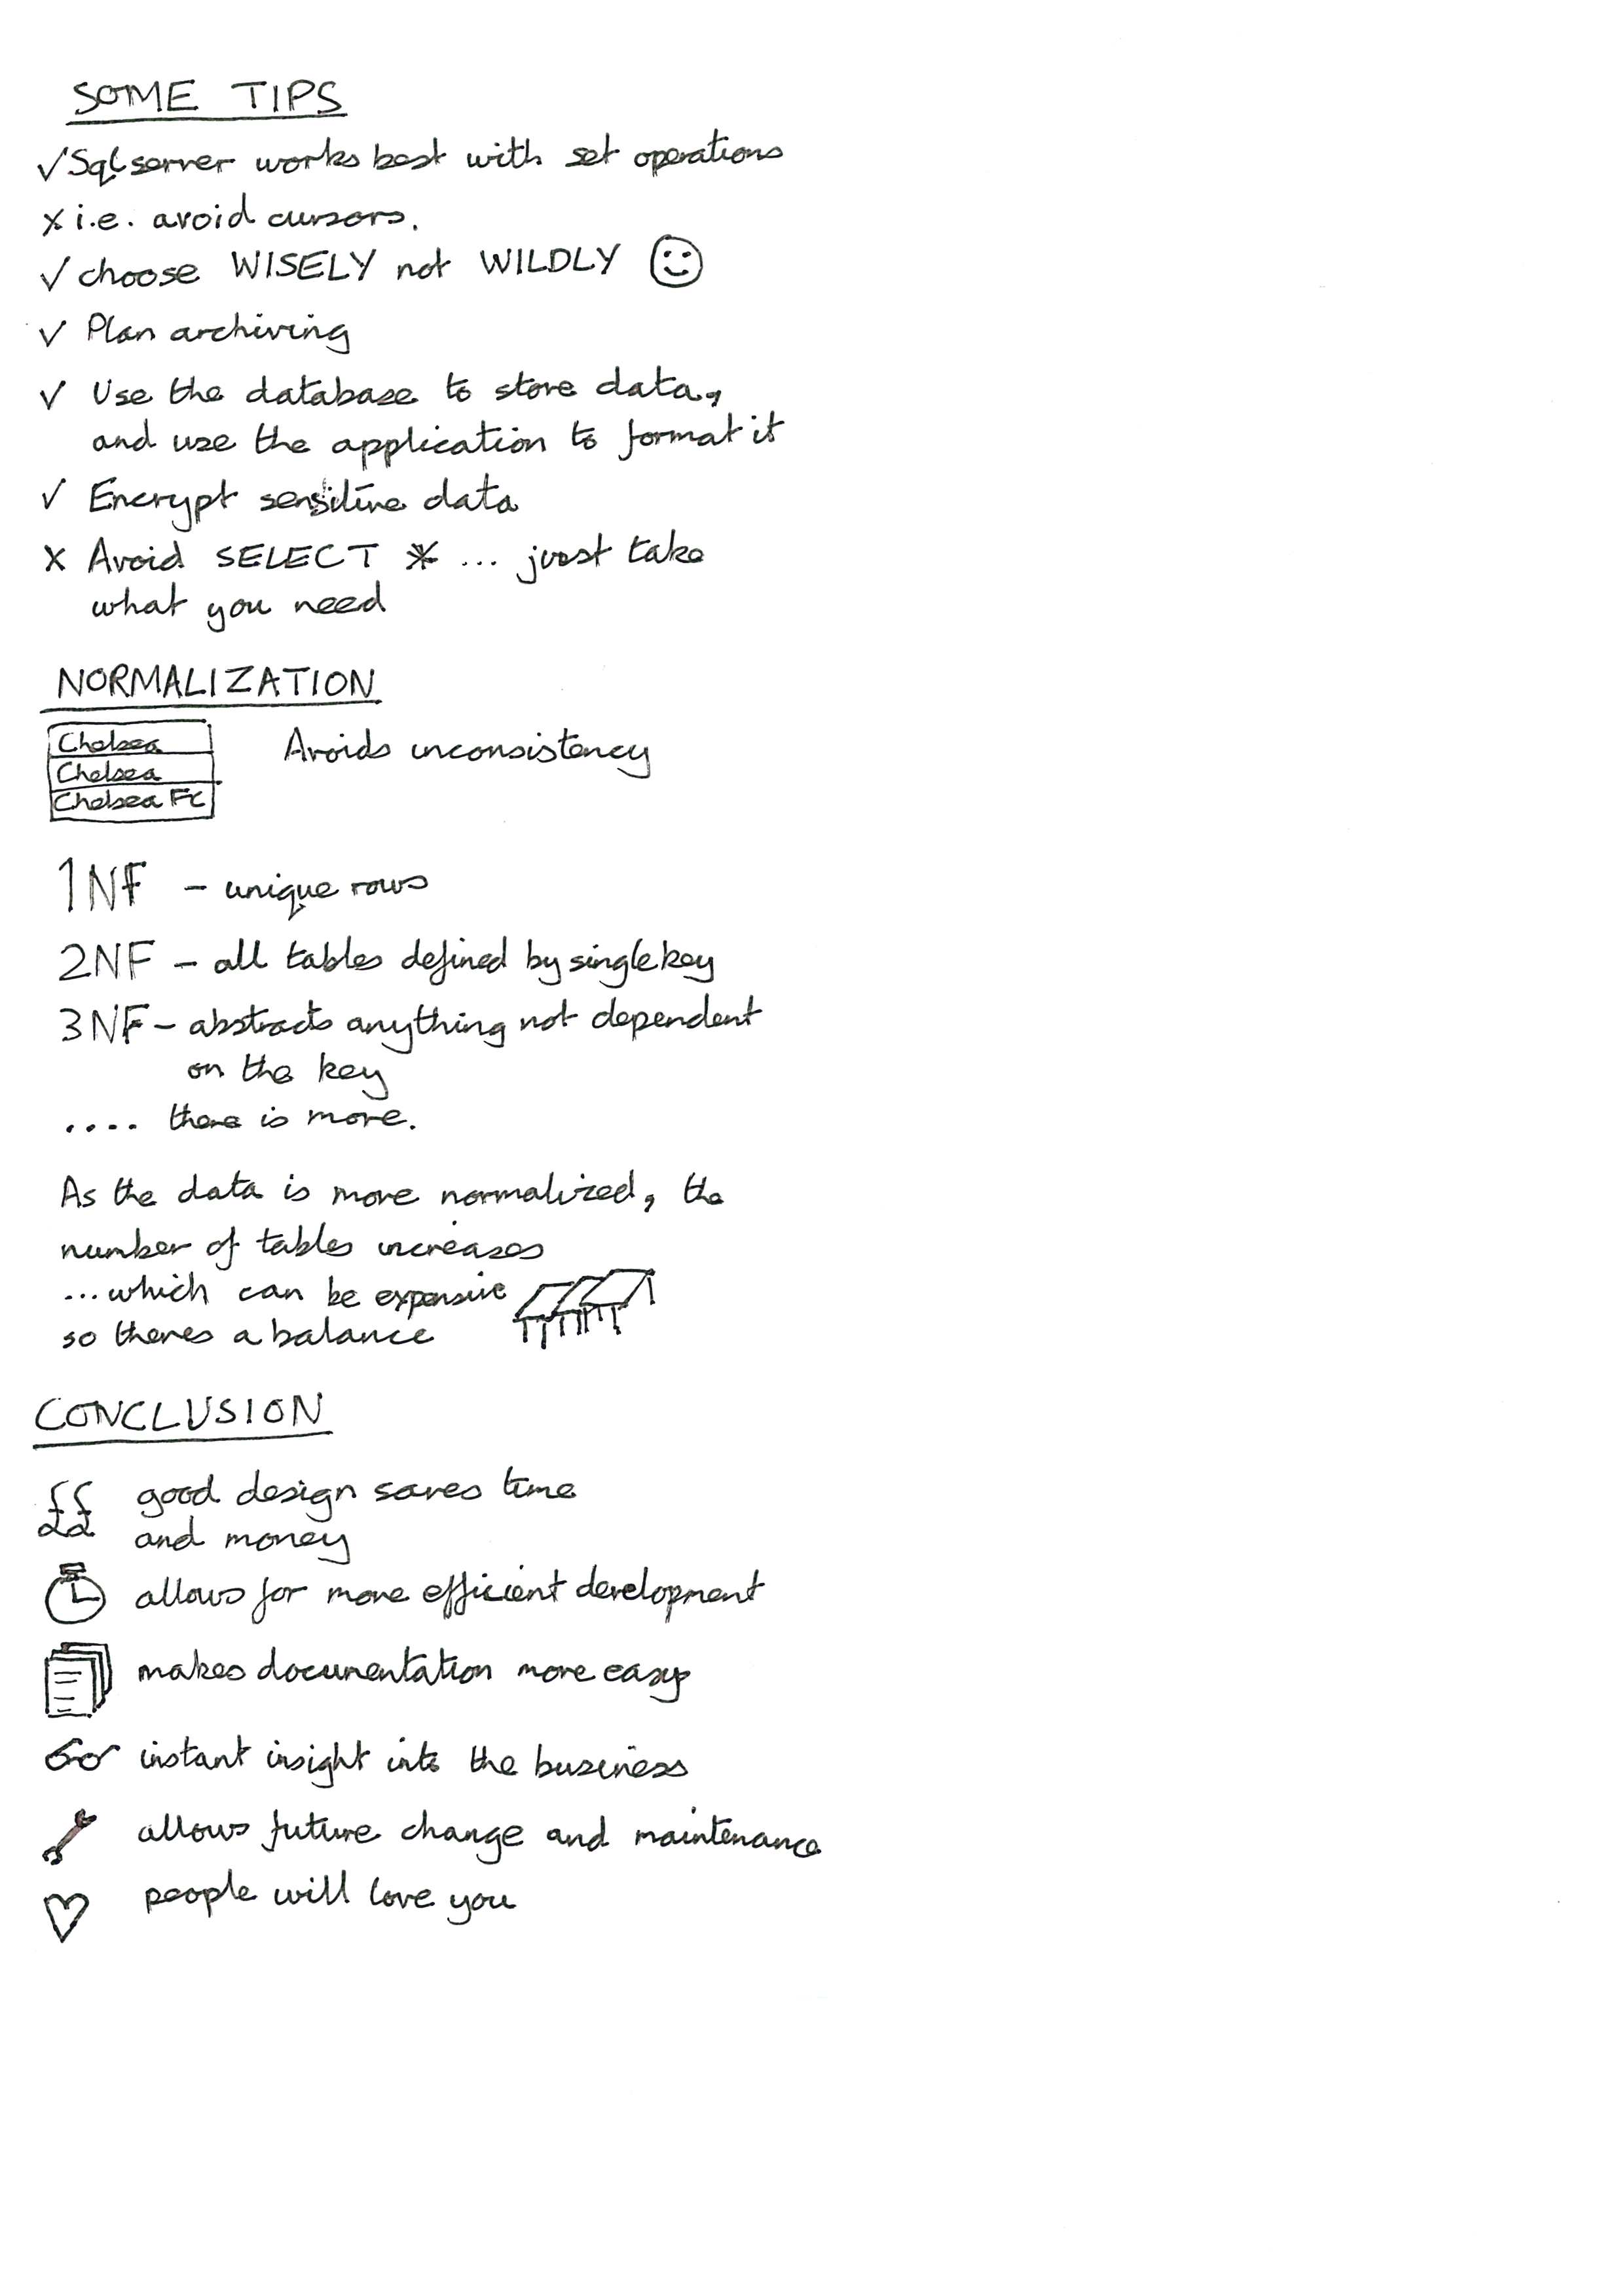 SOME TIPS
✓ Sql server works best with set operations
x i.e. avoid cursors.
✓ choose WISELY not WILDLY
✓ Plan archiving
✓ Use the database to store data,
and use the application to format it
✓ Encrypt sensitive data
x Avoid SELECT * ... just take
what you need
NORMALIZATION
Chelsea
Chelsea
Chelsea FC
Avoids inconsistency
1NF - unique rows
2NF - all tables defined by single key
3NF - abstracts anything not dependent
on the key
.... there is more.
As the data is more normalized, the
number of tables increases
...which can be expensive
so theres a balance
CONCLUSION
££ good design saves time
and money
allows for more efficient development
makes documentation more easy
instant insight into the business
allows future change and maintenance
people will love you